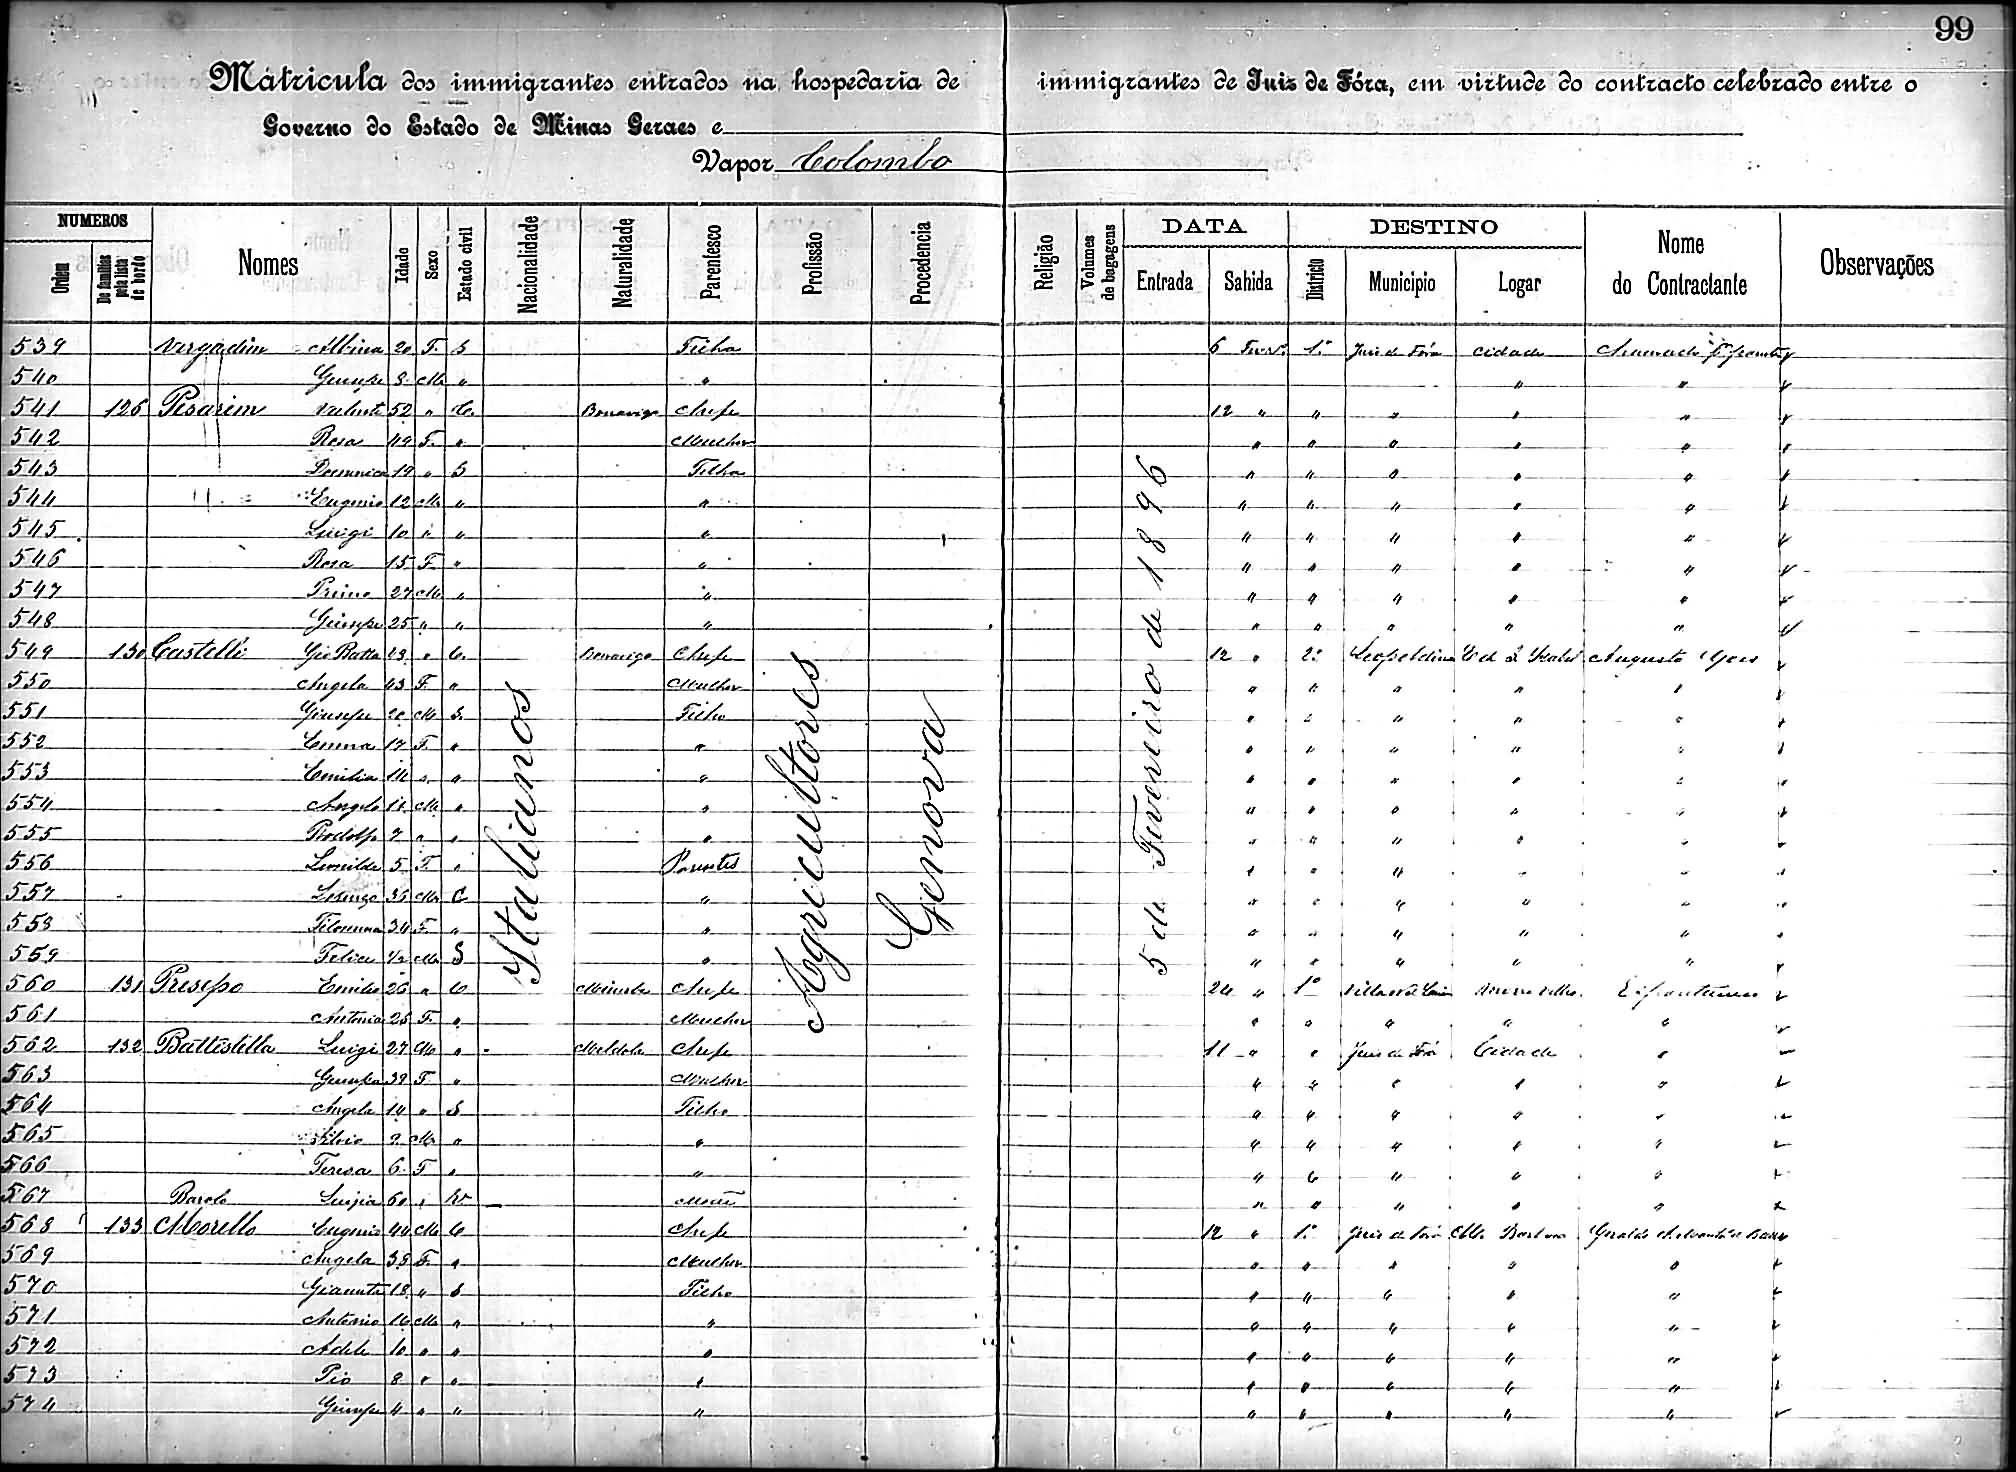 99
Matricula dos immigrantes entrados na hospedaria de immigrantes de Juiz de Fóra, em virtude do contracto celebrado entre o
Governo do Estado de Minas Geraes e
Vapor Colombo
NUMEROS DATA DESTINO
Ordem De familias pela lista de bordo Nomes Idade Sexo Estado civil Nacionalidade Naturalidade Parentesco Profissão Procedencia Religião Volumes de bagagens Entrada Sahida Districto Municipio Logar Nome do Contractante Observações
Italianos
Agricultores
Genova
5 de Fevereiro de 1896
539 Vergadim Albina 20 F. S Filha 6 1º Juiz de Fóra Cidade
540 8 M " " " "
541 126 Pesarim 52 " C. Bonavigo Chefe 12 " " " " "
542 Rosa 49 F. " Mulher " " " " "
543 Domenica 19 " S Filha " " " " "
544 Eugenio 12 M " " " " " " "
545 Luigi 10 " " " " " " " "
546 Rosa 15 F " " " " " " "
547 Primo 27 M " " " " " " "
548 Giuseppe 25 " " " " " " " "
549 130 Castelli Gio Batta 43 " C. Bonavigo Chefe 12 " 2º Leopoldina Augusto
550 Angela 43 F. " Mulher " " " " "
551 Giuseppe 20 M S. Filho " " " " "
552 Emma 17 F. " " " " " " "
553 Emilia 14 " " " " " " " "
554 Angelo 11 M. " " " " " " "
555 Rodolfo 7 " " " " " " " "
556 Leonilde 5 F. " Parentes " " " " "
557 Lorenzo 36 M C " " " " " "
558 Filomena 34 F. " " " " " " "
559 Felice 1/2 M S " " " " " "
560 131 Presepo Emilio 26 " C Chefe 24 " 1º
561 Antonia 25 F. " Mulher " " " " "
562 132 Battistella Luigi 27 M " Meldola Chefe 11 " " Juiz de Fóra Cidade "
563 39 F " Mulher " " " " "
564 Angela 14 " S Filho " " " " "
565 Silvio 9 M " " " " " " "
566 Teresa 6 F " " " " " " "
567 Barolo Luigia 60 " " " " " "
568 133 Morello Eugenio 44 M C Chefe 12 " 1º Juiz de Fóra
569 Angela 38 F. " Mulher " " " " "
570 18 " S Filho " " " " "
571 Antonio 16 M " " " " " " "
572 Adele 10 " " " " " " " "
573 Pio 8 " " " " " " " "
574 Giuseppe 4 " " " " " " " "